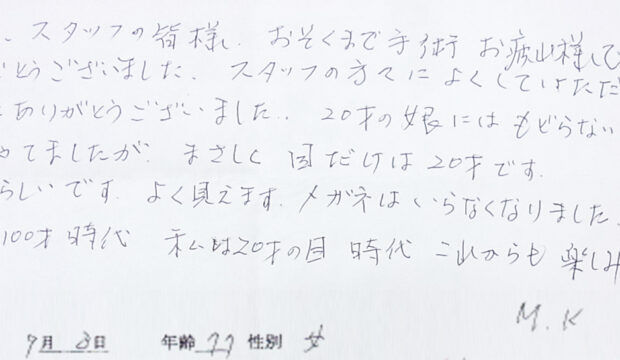 、スタッフの皆様、おそくまで手術お疲れ様して
どうございました。スタッフの方々によくしていただ
ありがとうございました。20才の娘にはもどらない
てましたが、まさしく目だけは20才です。
らしいです。よく見えます。メガネはいらなくなりました。
100才時代 私は20才の目時代 これからも楽しみ
M.K
9月 3日 年齢 77 性別 女